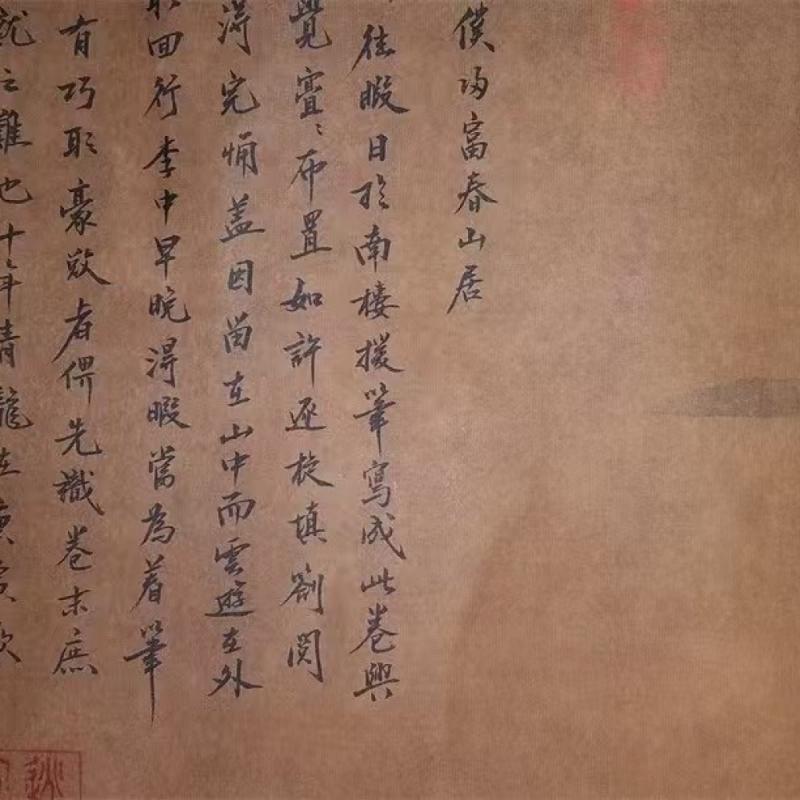 僕歸富春山居
往暇日於南樓援筆寫成此卷興
覺亹〻布置如許逐旋填劄閱
得完備蓋因留在山中而雲遊在外
取回行李中早晚得暇當為着筆
有巧取豪敓者俾先識卷末庶
就之難也十年青龍在庚寅歜